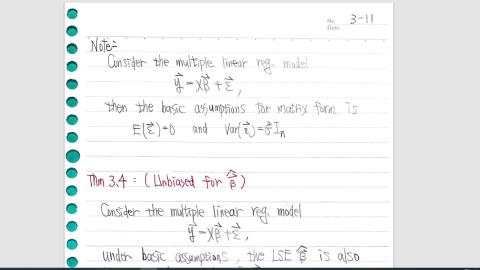 No. 3-11
Date.
Note:
Consider the multiple linear reg. model
y⃗ = Xβ⃗ + ε⃗,
then the basic assumptions for matrix form is
E(ε⃗)=0 and Var(ε⃗)=σ²Iₙ
Thm 3.4 : (Unbiased for β⃗̂)
Consider the multiple linear reg. model
y⃗ = Xβ⃗ + ε⃗,
under basic assumptions, the LSE β⃗̂ is also